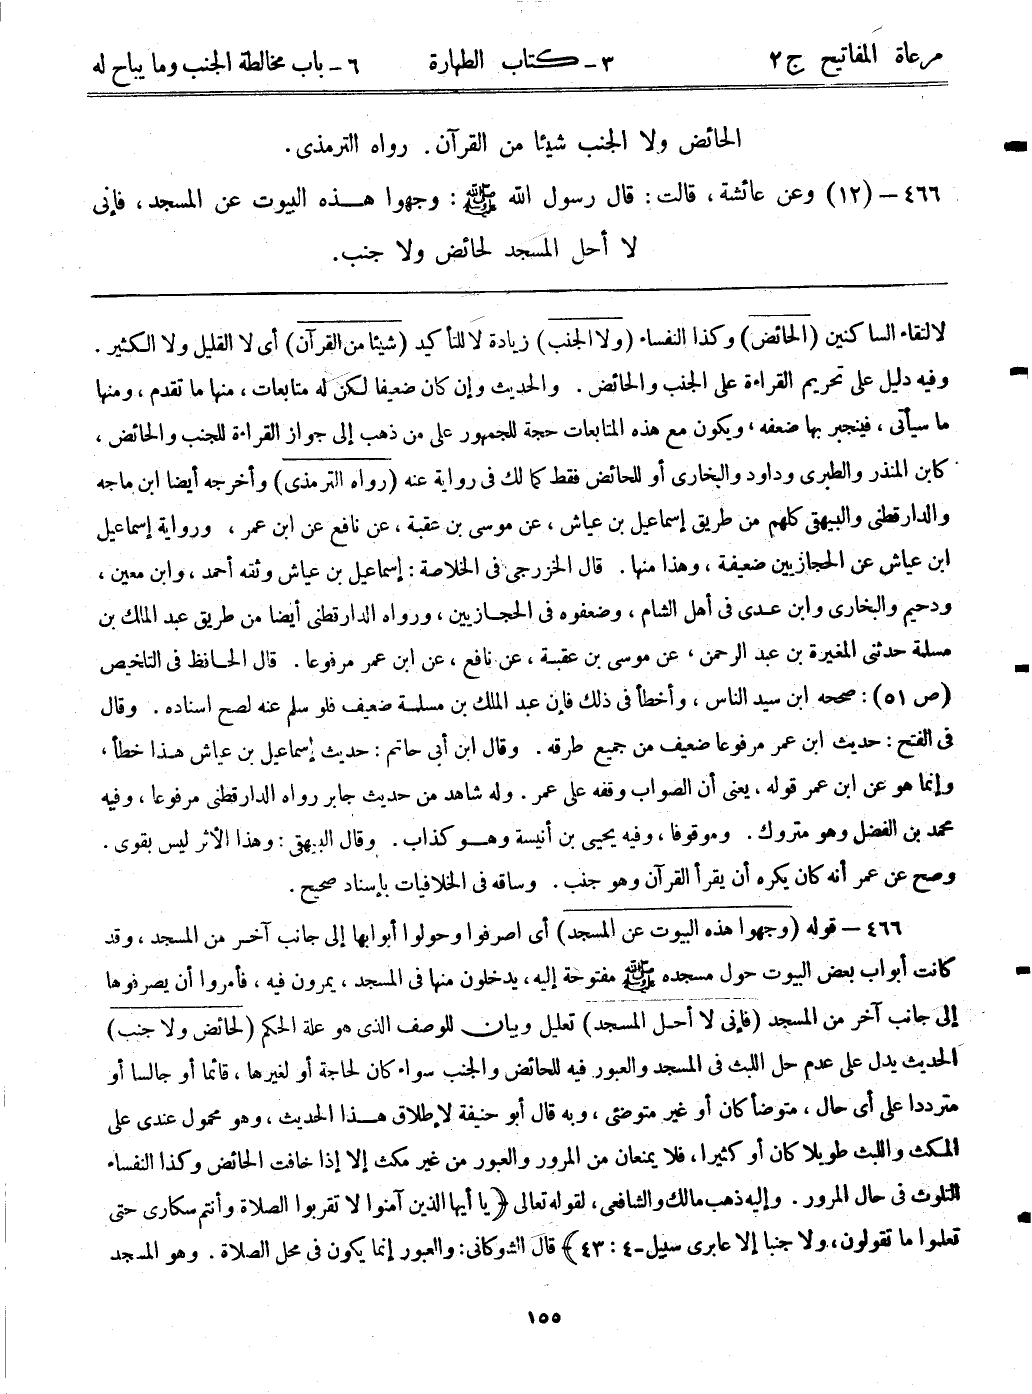 مرعاة المفاتيح ج ٢ ٣ - كتاب الطهارة ٦ - باب مخالطة الجنب وما يباح له
الحائض ولا الجنب شيئا من القرآن. رواه الترمذى.
٤٦٦ - (١٢) وعن عائشة، قالت: قال رسول الله ﷺ: وجهوا هذه البيوت عن المسجد، فإنى
لا أحل المسجد لحائض ولا جنب.
لالتقاء الساكنين (الحائض) وكذا النفساء (ولا الجنب) زيادة لا للتأكيد (شيئا من القرآن) أى لا القليل ولا الكثير.
وفيه دليل على تحريم القراءة على الجنب والحائض. والحديث وإن كان ضعيفا لكن له متابعات، منها ما تقدم، ومنها
ما سيأتى، فينجبر بها ضعفه، ويكون مع هذه المتابعات حجة للجمهور على من ذهب إلى جواز القراءة للجنب والحائض،
كابن المنذر والطبرى وداود والبخارى أو للحائض فقط كمالك فى رواية عنه (رواه الترمذى) وأخرجه أيضا ابن ماجه
والدارقطنى والبيهقى كلهم من طريق إسماعيل بن عياش، عن موسى بن عقبة، عن نافع عن ابن عمر، ورواية إسماعيل
ابن عياش عن الحجازيين ضعيفة، وهذا منها. قال الخزرجى فى الخلاصة: إسماعيل بن عياش وثقه أحمد، وابن معين،
ودحيم والبخارى وابن عدى فى أهل الشام، وضعفوه فى الحجازيين، ورواه الدارقطنى أيضا من طريق عبد الملك بن
مسلمة حدثنى المغيرة بن عبد الرحمن، عن موسى بن عقبة، عن نافع، عن ابن عمر مرفوعا. قال الحافظ فى التلخيص
(ص ٥١): صححه ابن سيد الناس، وأخطأ فى ذلك فإن عبد الملك بن مسلمة ضعيف فلو سلم عنه لصح اسناده. وقال
فى الفتح: حديث ابن عمر مرفوعا ضعيف من جميع طرقه. وقال ابن أبى حاتم: حديث إسماعيل بن عياش هذا خطأ،
وإنما هو عن ابن عمر قوله، يعنى أن الصواب وقفه على عمر. وله شاهد من حديث جابر رواه الدارقطنى مرفوعا، وفيه
محمد بن الفضل وهو متروك. وموقوفا، وفيه يحيى بن أنيسة وهو كذاب. وقال البيهقى: وهذا الأثر ليس بقوى.
وصح عن عمر أنه كان يكره أن يقرأ القرآن وهو جنب. وساقه فى الخلافيات بإسناد صحيح.
٤٦٦ - قوله (وجهوا هذه البيوت عن المسجد) أى اصرفوا وحولوا أبوابها إلى جانب آخر من المسجد، وقد
كانت أبواب بعض البيوت حول مسجده ﷺ مفتوحة إليه، يدخلون منها فى المسجد، يمرون فيه، فأمروا أن يصرفوها
إلى جانب آخر من المسجد (فإنى لا أحل المسجد) تعليل وبيان للوصف الذى هو علة الحكم (لحائض ولا جنب)
الحديث يدل على عدم حل اللبث فى المسجد والعبور فيه للحائض والجنب سواء كان لحاجة أو لغيرها، قائما أو جالسا أو
مترددا على أى حال، متوضأ كان أو غير متوضئى، وبه قال أبو حنيفة لإطلاق هذا الحديث، وهو محمول عندى على
المكث واللبث طويلا كان أو كثيرا، فلا يمنعان من المرور والعبور من غير مكث إلا إذا خافت الحائض وكذا النفساء
التلوث فى حال المرور. وإليه ذهب مالك والشافعى، لقوله تعالى ﴿يا أيها الذين آمنوا لا تقربوا الصلاة وأنتم سكارى حتى
تعلموا ما تقولون، ولا جنبا إلا عابرى سبيل - ٤: ٤٣﴾ قال الشوكانى: والعبور إنما يكون فى محل الصلاة. وهو المسجد
١٥٥